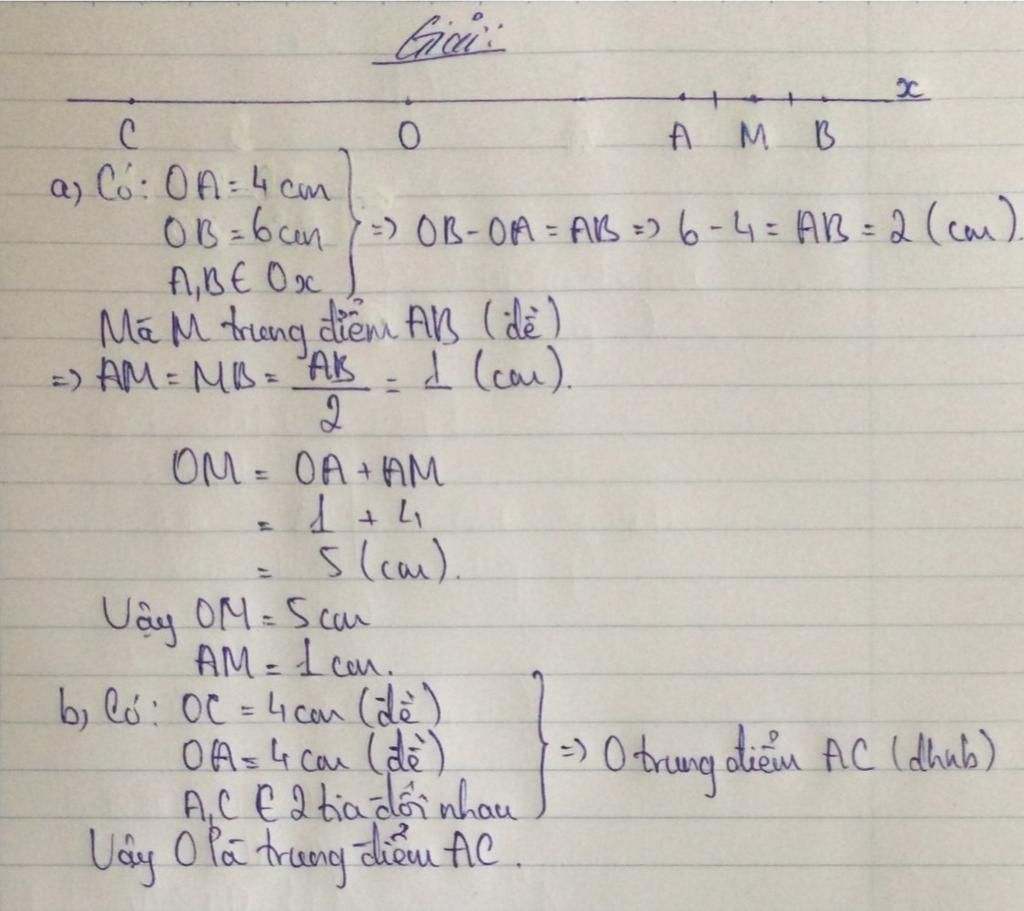 Giải:
x
C O A M B
a, Có: OA = 4 cm
OB = 6 cm => OB - OA = AB => 6 - 4 = AB = 2 (cm).
A,B ∈ Ox
Mà M trung điểm AB (đề)
=> AM = MB = AB/2 = 1 (cm).
OM = OA + AM
= 1 + 4
= 5 (cm).
Vậy OM = 5 cm
AM = 1 cm.
b, Có: OC = 4 cm (đề)
OA = 4 cm (đề) => O trung điểm AC (dhnb)
A,C ∈ 2 tia đối nhau
Vậy O là trung điểm AC.